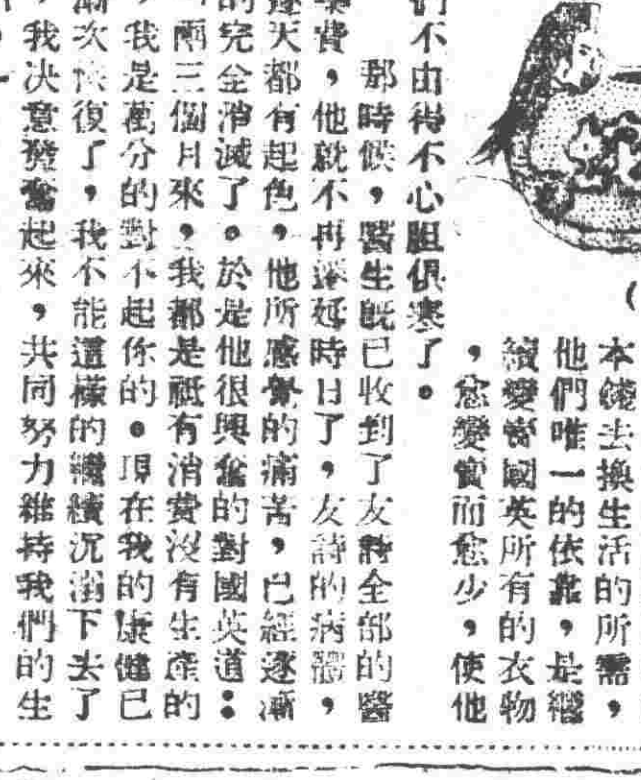 本錢去換生活的所需，
他們唯一的依靠，是繼
續變賣國英所有的衣物
，愈變賣而愈少，使他
們不由得不心胆俱寒了。
那時候，醫生既已收到了友詩全部的醫
費，他就不再遷延時日了，友詩的病體，
逐天都有起色，他所感覺的痛苦，已經逐漸
的完全消滅了。於是他很興奮的對國英道：
兩三個月來，我都是祇有消費沒有生產的
，我是萬分的對不起你的。現在我的康健已
漸次恢復了，我不能這樣的繼續沉淪下去了
，我决意發奮起來，共同努力維持我們的生